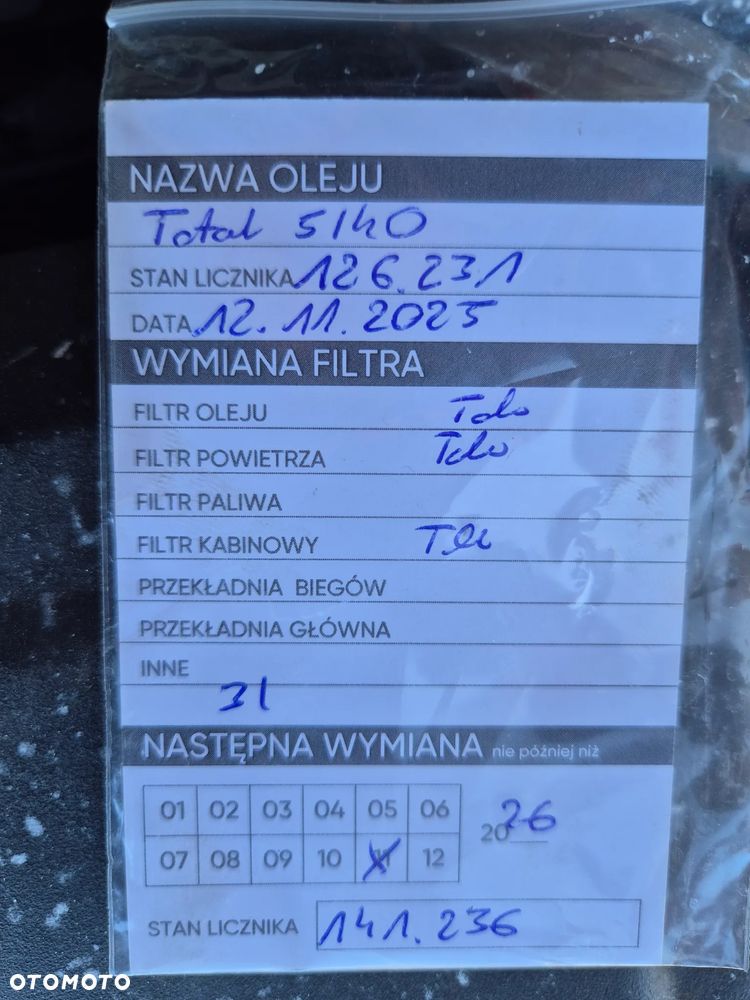 NAZWA OLEJU
Total 5/40
STAN LICZNIKA 126.231
DATA 12.11.2025
WYMIANA FILTRA
FILTR OLEJU
FILTR POWIETRZA
FILTR PALIWA
FILTR KABINOWY
PRZEKŁADNIA BIEGÓW
PRZEKŁADNIA GŁÓWNA
INNE
3l
NASTĘPNA WYMIANA nie później niż
01 02 03 04 05 06
2026
07 08 09 10 11 12
STAN LICZNIKA 141.236
OTOMOTO